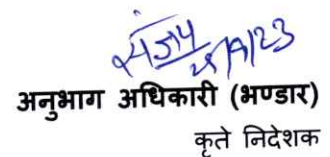 संजय
अनुभाग अधिकारी (भण्डार)
कृते निदेशक